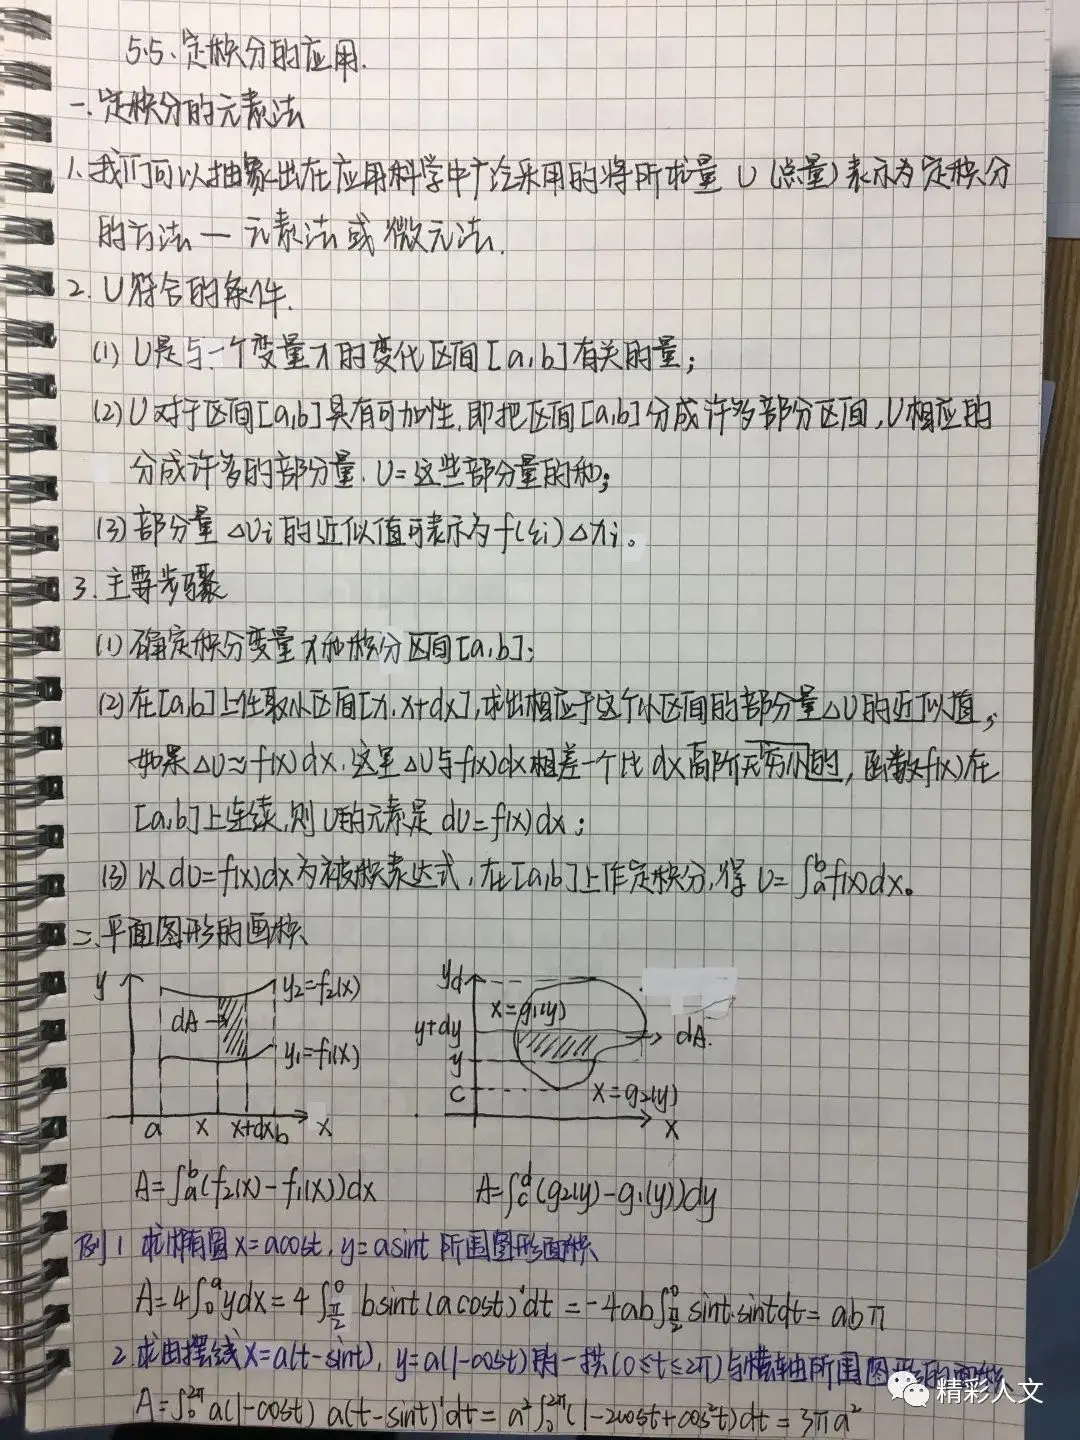 5.5、定积分的应用.
一.定积分的元素法
1.我们可以抽象出在应用科学中广泛采用的将所求量 U (总量) 表示为定积分
的方法 — 元素法或微元法.
2. U符合的条件.
(1) U是与一个变量x的变化区间[a,b]有关的量;
(2) U对于区间[a,b]具有可加性,即把区间[a,b]分成许多部分区间,U相应的
分成许多的部分量. U=这些部分量的和;
(3) 部分量 △Ui 的近似值可表示为f(ξi)△xi。
3.主要步骤
(1) 确定积分变量x和积分区间[a,b];
(2) 在[a,b]上任取小区间[x,x+dx],求出相应于这个小区间的部分量△U的近似值,
如果△U≈f(x)dx.这里△U与f(x)dx相差一个比dx高阶无穷小的,函数f(x)在
[a,b]上连续,则U的元素是 dU=f(x)dx;
(3) 以dU=f(x)dx为被积表达式,在[a,b]上作定积分,得 U=∫ₐᵇf(x)dx。
二.平面图形的面积
y y₂=f₂(x) dA y₁=f₁(x)
a x x+dx b x
y d x=g₁(y) y+dy dA. y c x=g₂(y)
x
A=∫ₐᵇ(f₂(x)-f₁(x))dx A=∫_c^d(g₂(y)-g₁(y))dy
例1 求椭圆x=acost, y=asint所围图形面积
A=4∫₀ᵃydx=4∫_{π/2}^0 bsint(acost)'dt=-4ab∫_{π/2}^0 sint·sintdt=abπ
2 求由摆线x=a(t-sint), y=a(1-cost)的一拱(0≤t≤2π)与横轴所围图形的面积
A=∫_0^{2π}a(1-cost) a(t-sint)'dt=a²∫_0^{2π}(1-2cost+cos²t)dt=3πa²
精彩人文